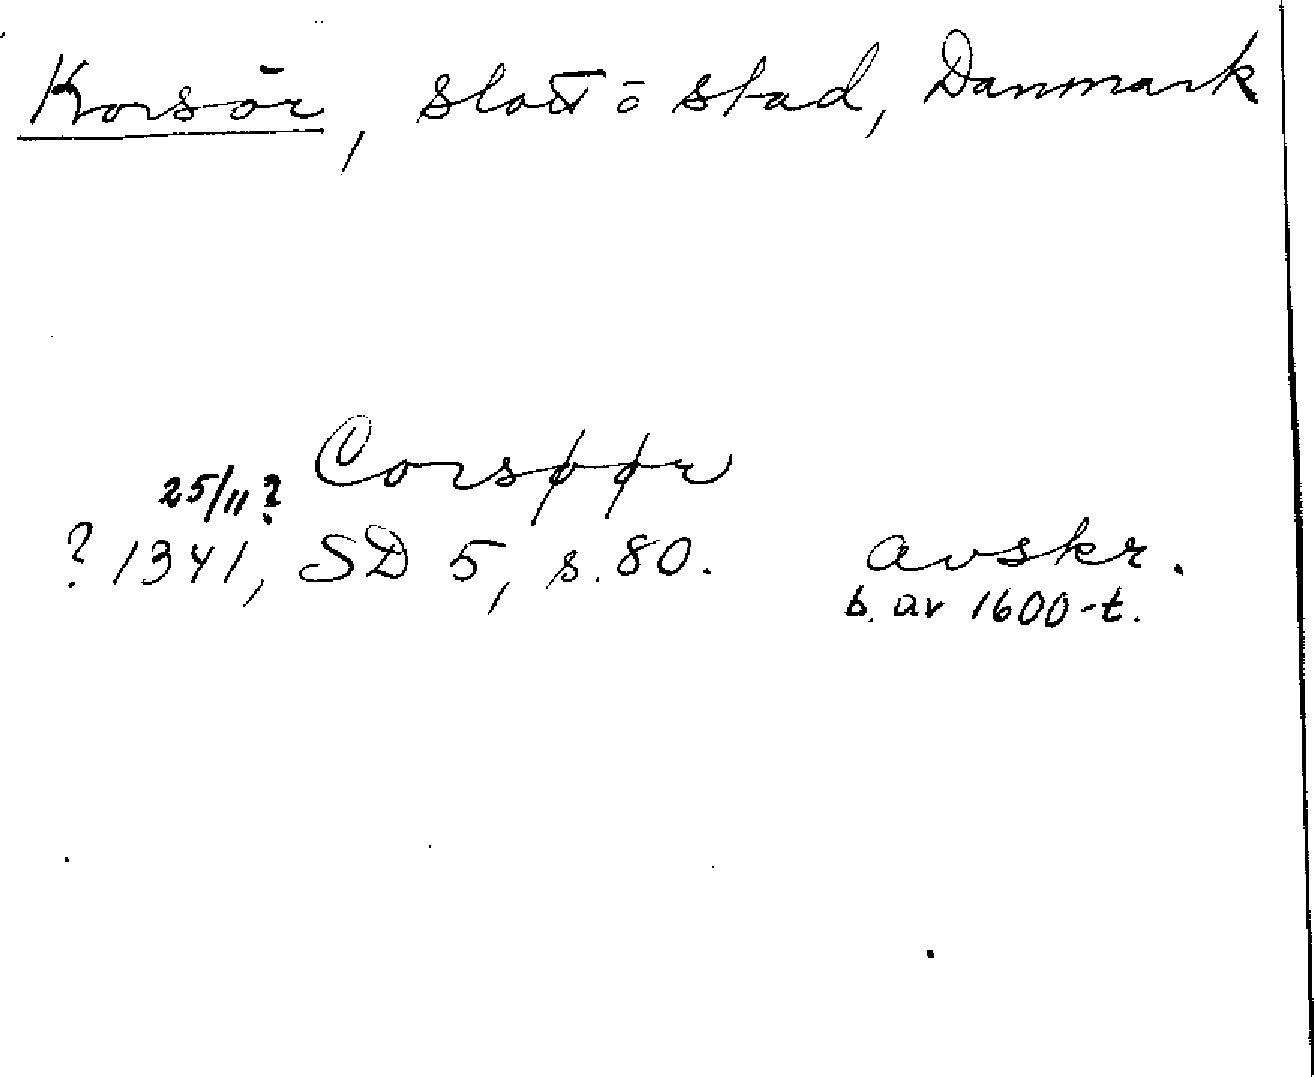 Korsör, slott ö stad, Danmark
Corsøør
25/11?
? 1341, SD 5, s. 80. avskr.
b. av 1600-t.